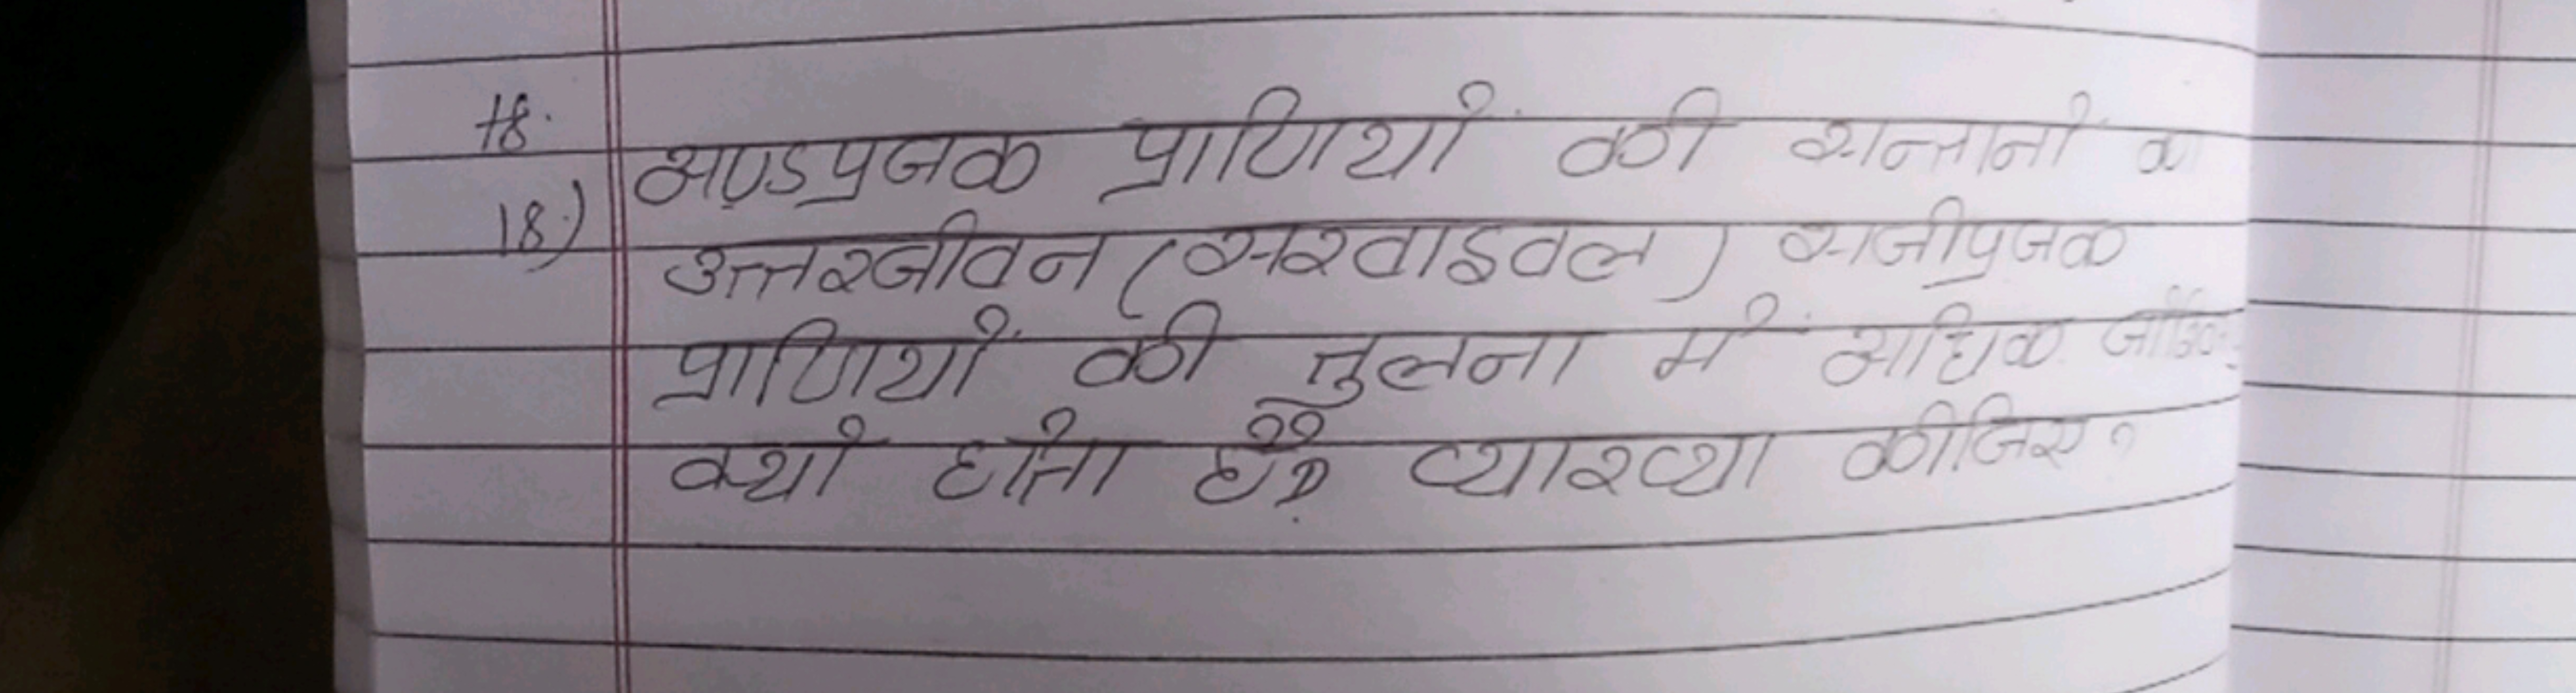 18.
अण्डप्रजक प्राणियों की सन्तानों का
18) उत्तरजीवन (सरवाइवल) सजीप्रजक
प्राणियों की तुलना में अधिक
क्यों होता है? व्याख्या कीजिए?